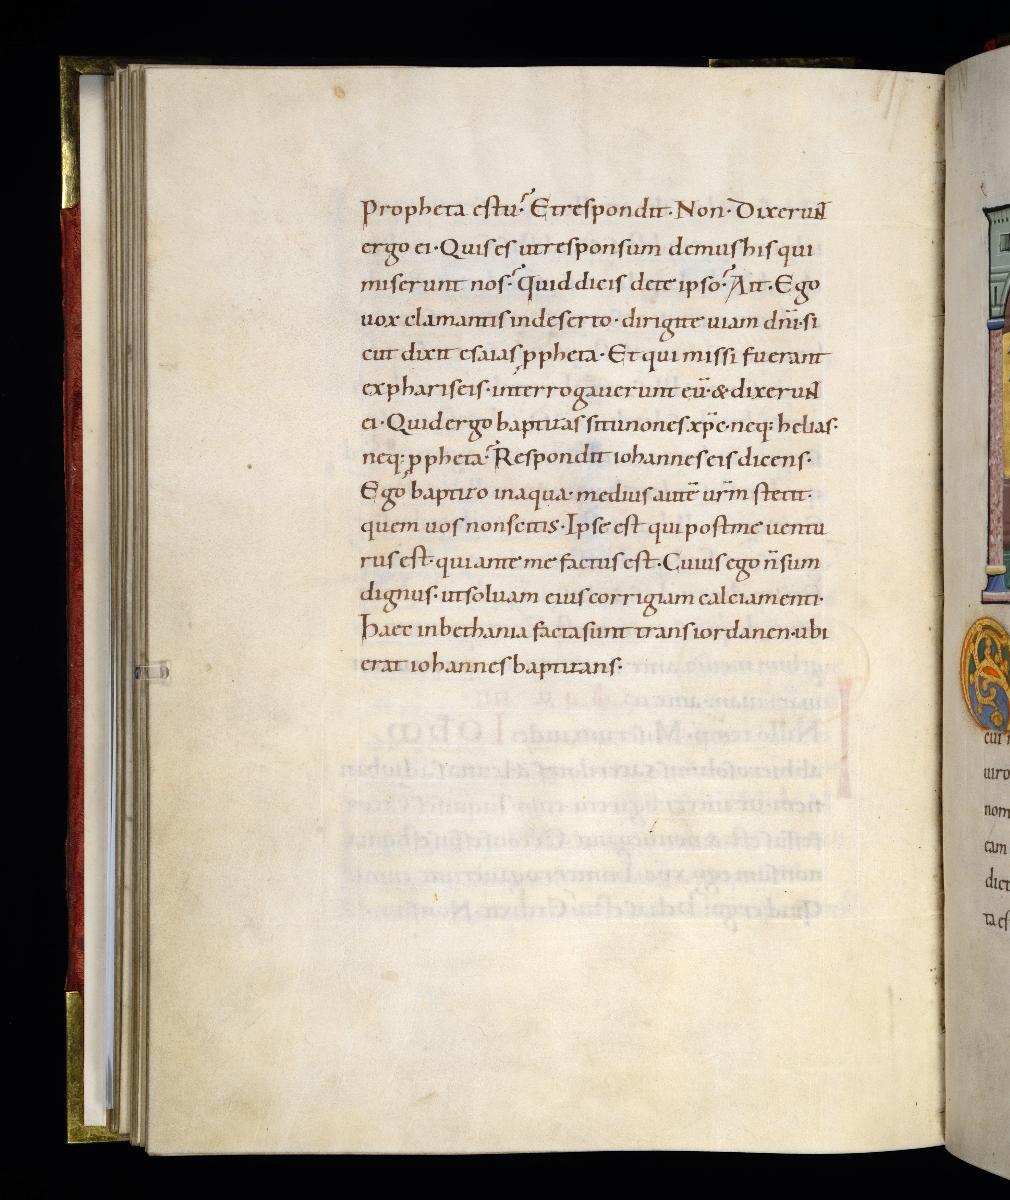 Propheta es tu. Et respondit. Non. Dixerunt
ergo ei. Quis es ut responsum demus his qui
miserunt nos. Quid dicis de te ipso. Ait. Ego
vox clamantis in deserto. dirigite uiam dñi. si
cut dixit esaias ꝓpheta. Et qui missi fuerant
ex phariseis. interrogauerunt eū. & dixerunt
ei. Quid ergo baptizas si tu non es xp̄c. neq; helias.
neq; ꝓpheta. Respondit iohannes eis dicens.
Ego baptizo in aqua. medius autē ur̄m stetit.
quem uos non scitis. Ipse est qui post me uentu
rus est. qui ante me factus est. Cuius ego n̄ sum
dignus. ut soluam eius corrigiam calciamenti.
Haec in bethania facta sunt trans iordanen. ubi
erat iohannes baptizans.
cui
uiro
nom
cam
dict
ta es